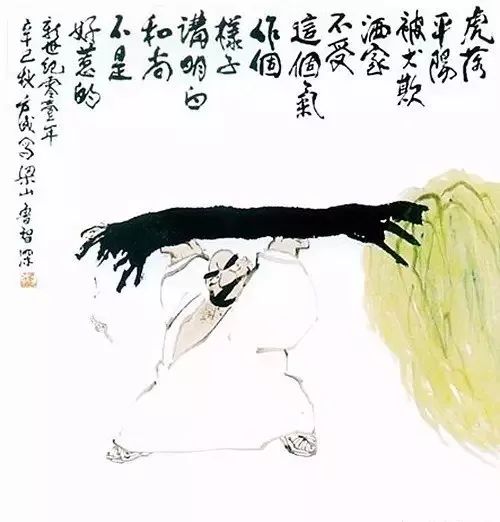 虎落
平陽
被犬欺
洒家
不受
這個氣
作個
樣子
講明白
和尚
不是
好惹的
新世紀零壹年
辛巳秋方成寫梁山魯智深